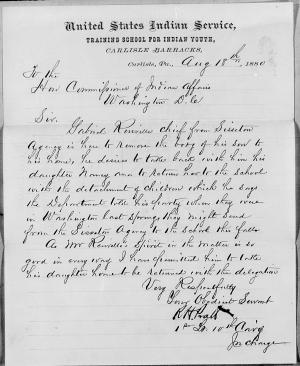 United States Indian Service,
TRAINING SCHOOL FOR INDIAN YOUTH,
CARLISLE BARRACKS,
Carlisle, Pa., Aug 18th, 1880
To the
Hon Commissioner of Indian Affairs
Washington D.C.
Sir.
Gabriel Renville chief from Sisseton
Agency is here to remove the body of his son to
his home, he desires to take back with him his
daughter Nancy and to return her to the school
with the detachment of children which he says
the Department told his party when they were
in Washington last Spring they might send
from the Sisseton Agency to the school this fall.
As Mr Renville's Spirit in the matter is so
good in every way I have permitted him to take
his daughter home to be returned with the delegation
Very Respectfully
Your Obedient Servant
R H Pratt
1st Lt. 10th Cav'y
In charge